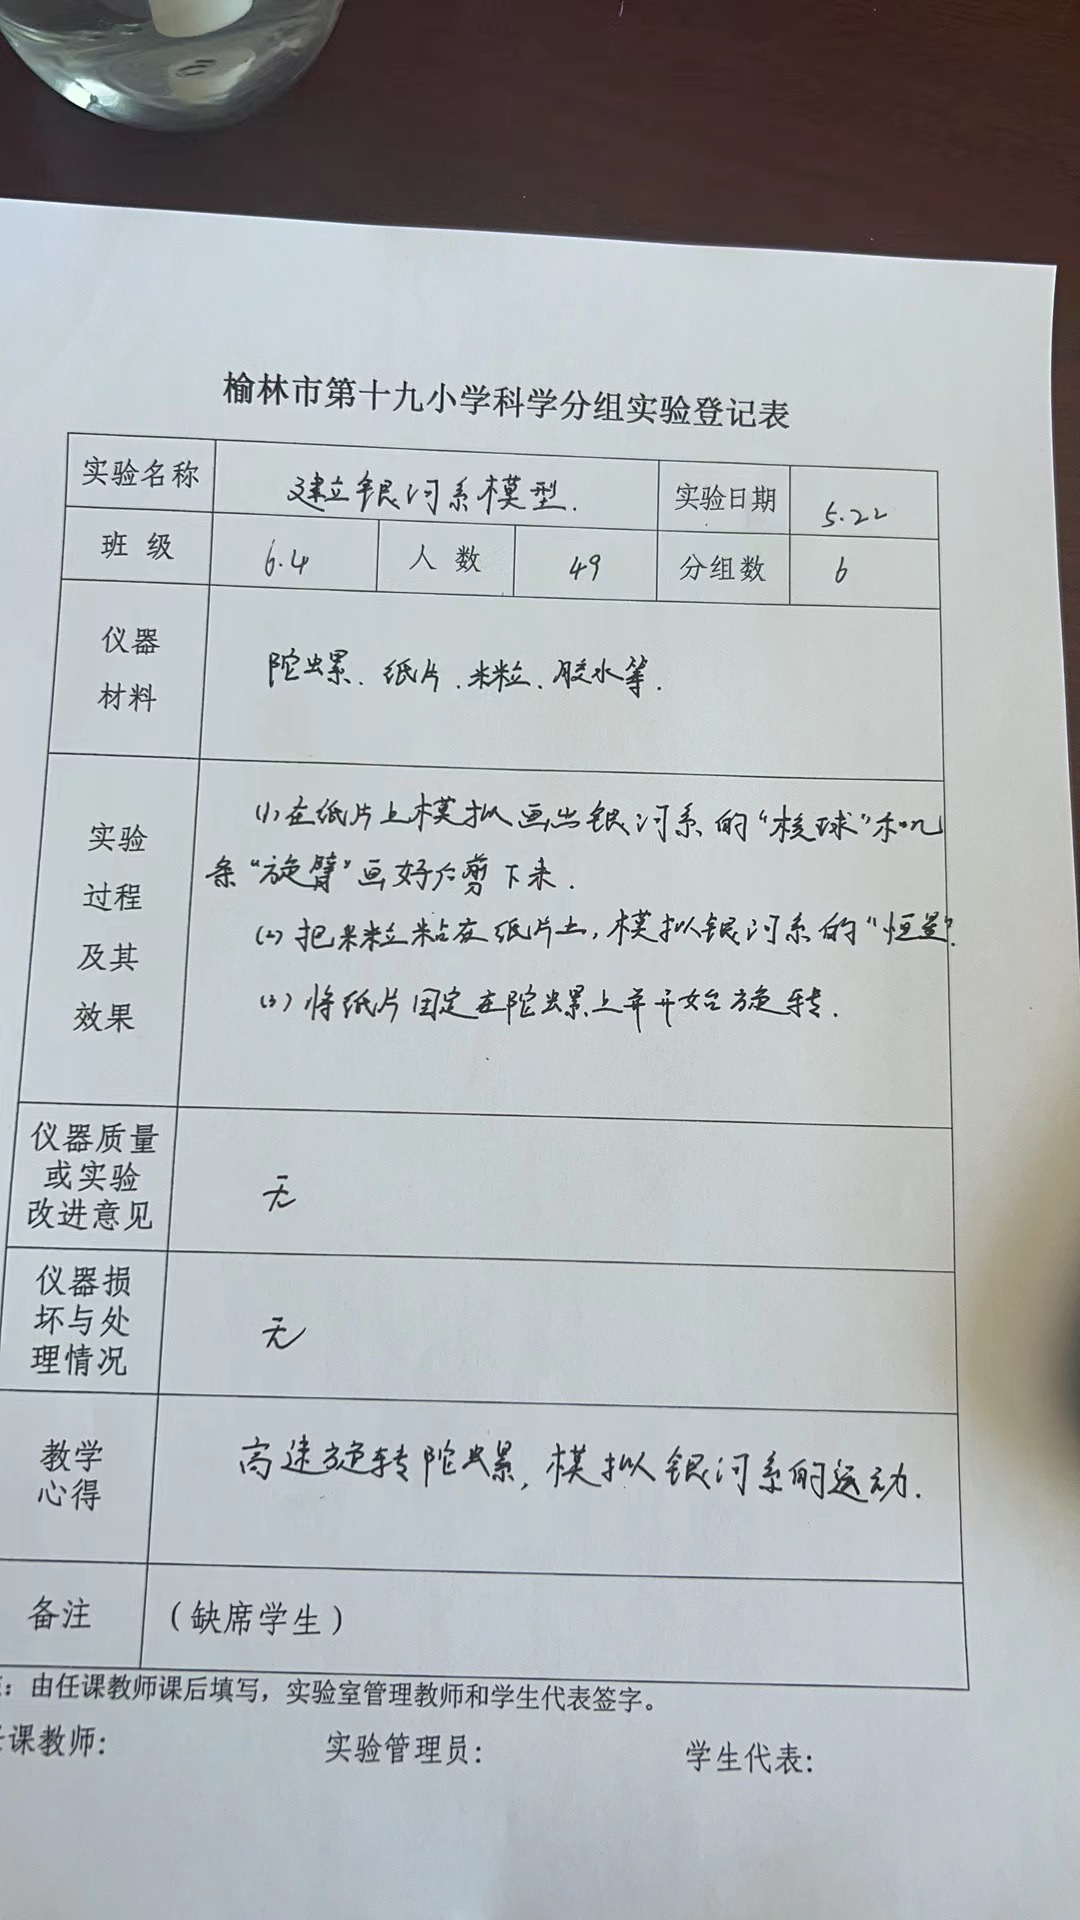 榆林市第十九小学科学分组实验登记表
实验名称 建立银河系模型. 实验日期 5.22
班级 6.4 人数 49 分组数 6
仪器
材料
陀螺、纸片、米粒、胶水等.
实验
过程
及其
效果
(1)在纸片上模拟画出银河系的“核球”和几
条“旋臂”画好后剪下来.
(2)把米粒粘在纸片上,模拟银河系的“恒星”.
(3)将纸片固定在陀螺上并开始旋转.
仪器质量
或实验
改进意见
无
仪器损
坏与处
理情况
无
教学
心得
高速旋转陀螺,模拟银河系的运动.
备注 (缺席学生)
:由任课教师课后填写,实验室管理教师和学生代表签字。
任课教师: 实验管理员: 学生代表: